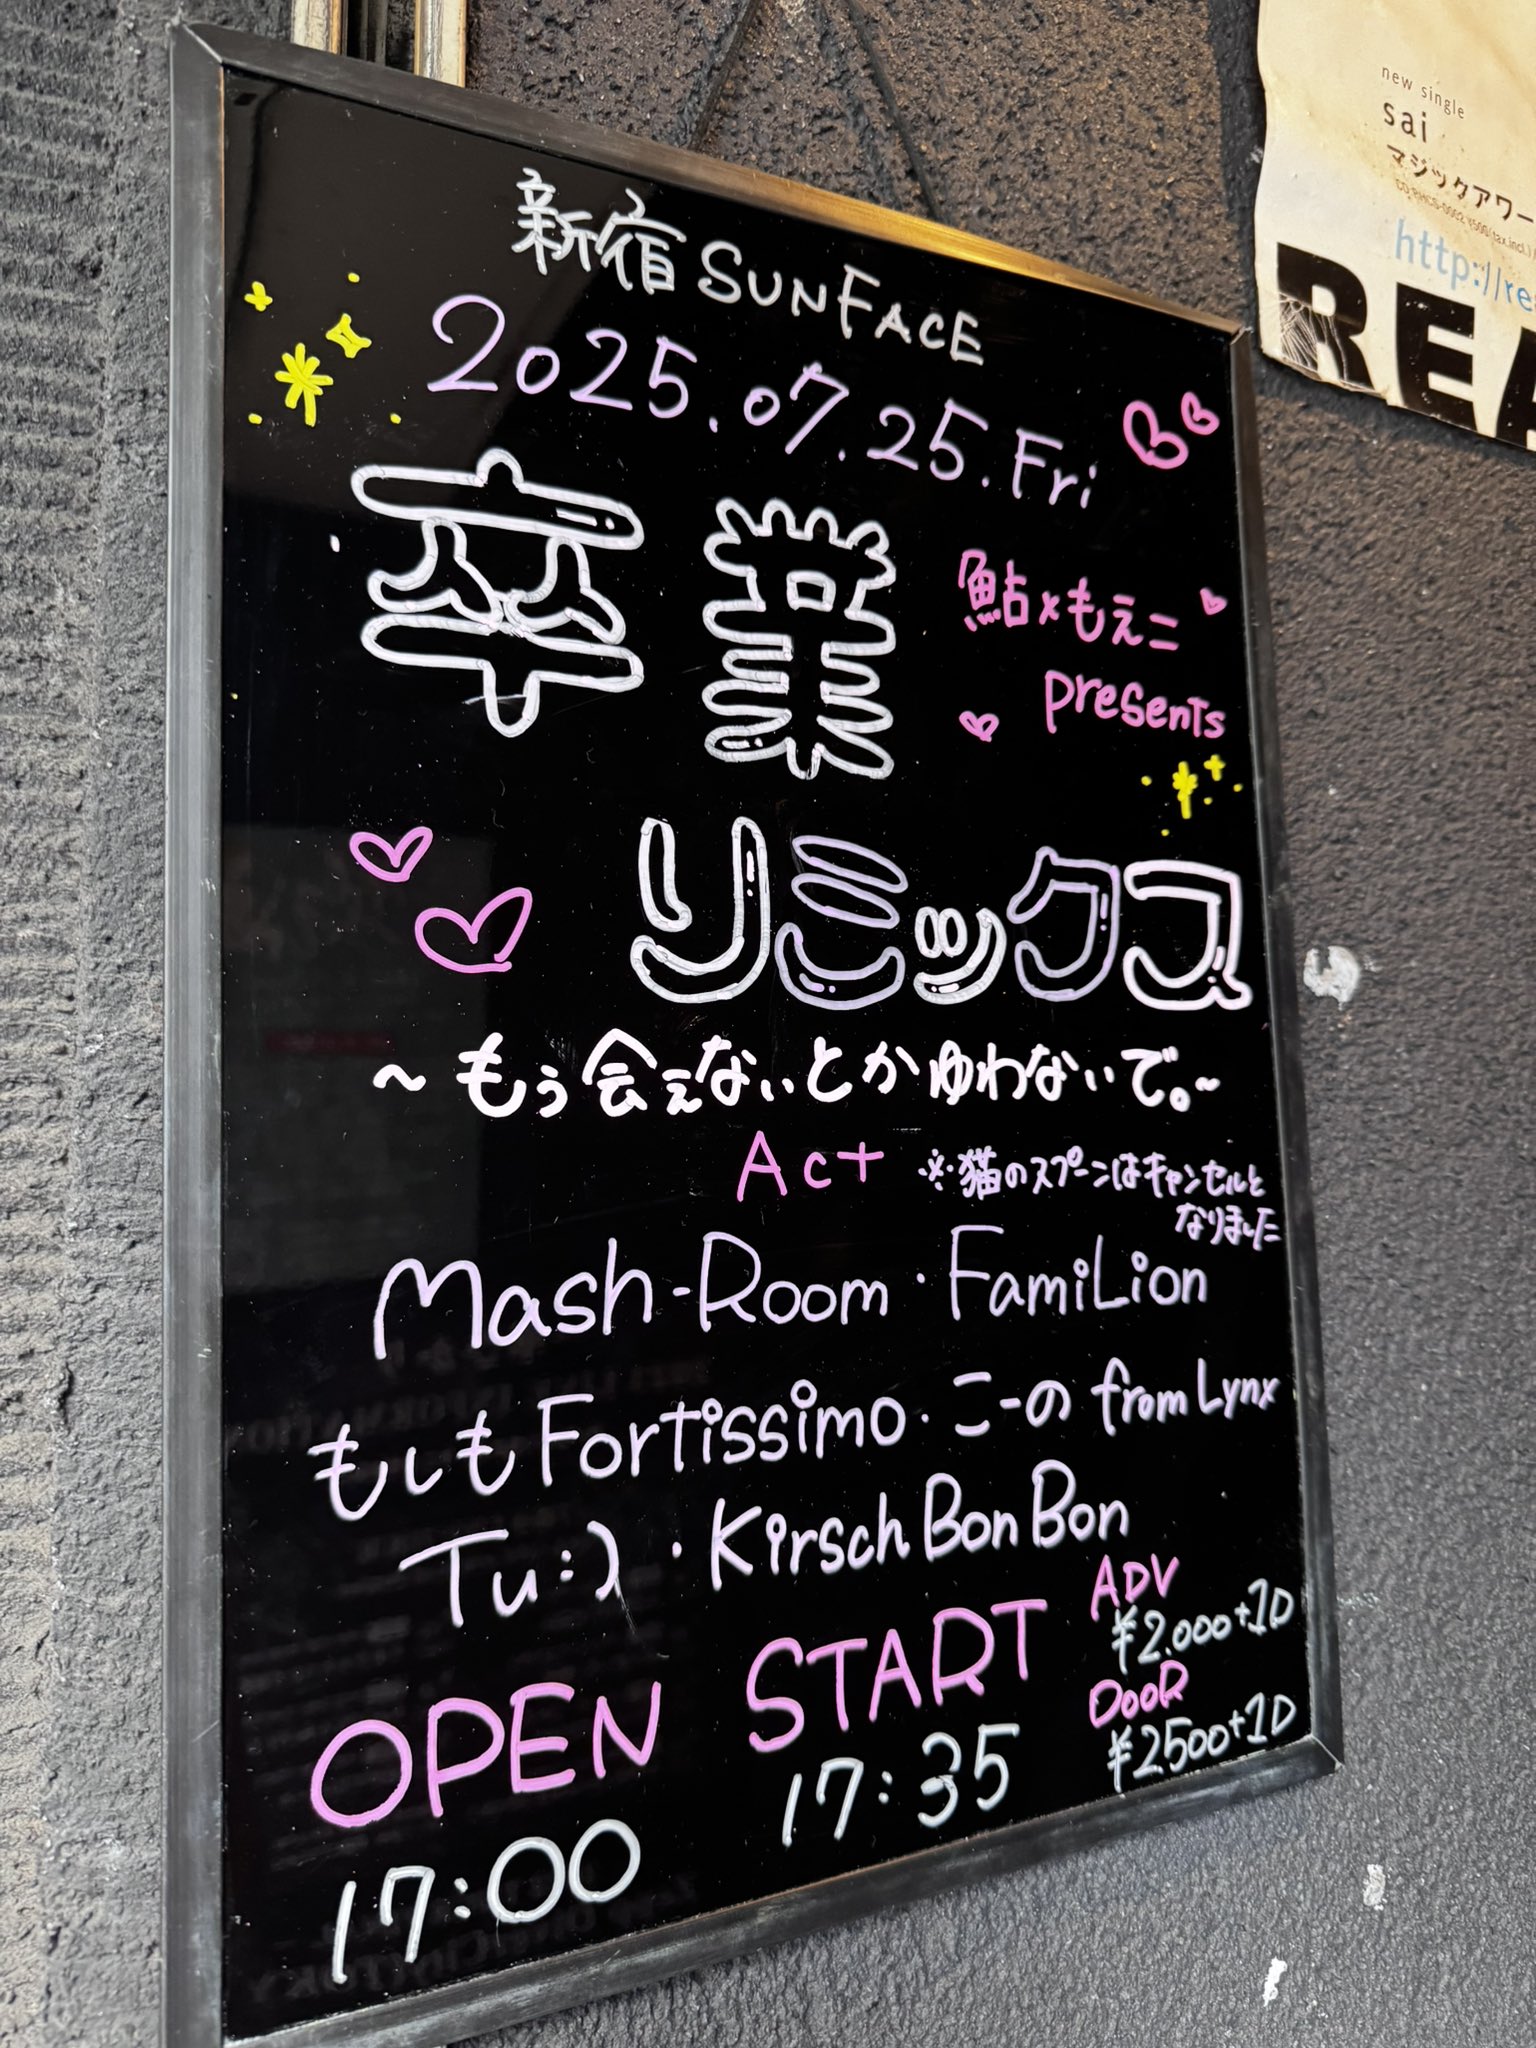 新宿SUNFACE
2025.07.25.Fri
卒業
鮎×もえこ
presents
リミックス
～もう会えないとかゆわないで。～
Act
※猫のスプーンはキャンセルと
なりました
Mash-Room・FamiLion
もしもFortissimo・こーの from Lynx
Tu:)・Kirsch Bon Bon
OPEN
17:00
START
17:35
ADV
¥2.000+1D
DOOR
¥2500+1D
new single
sai
マジックアワー
http://re
REA